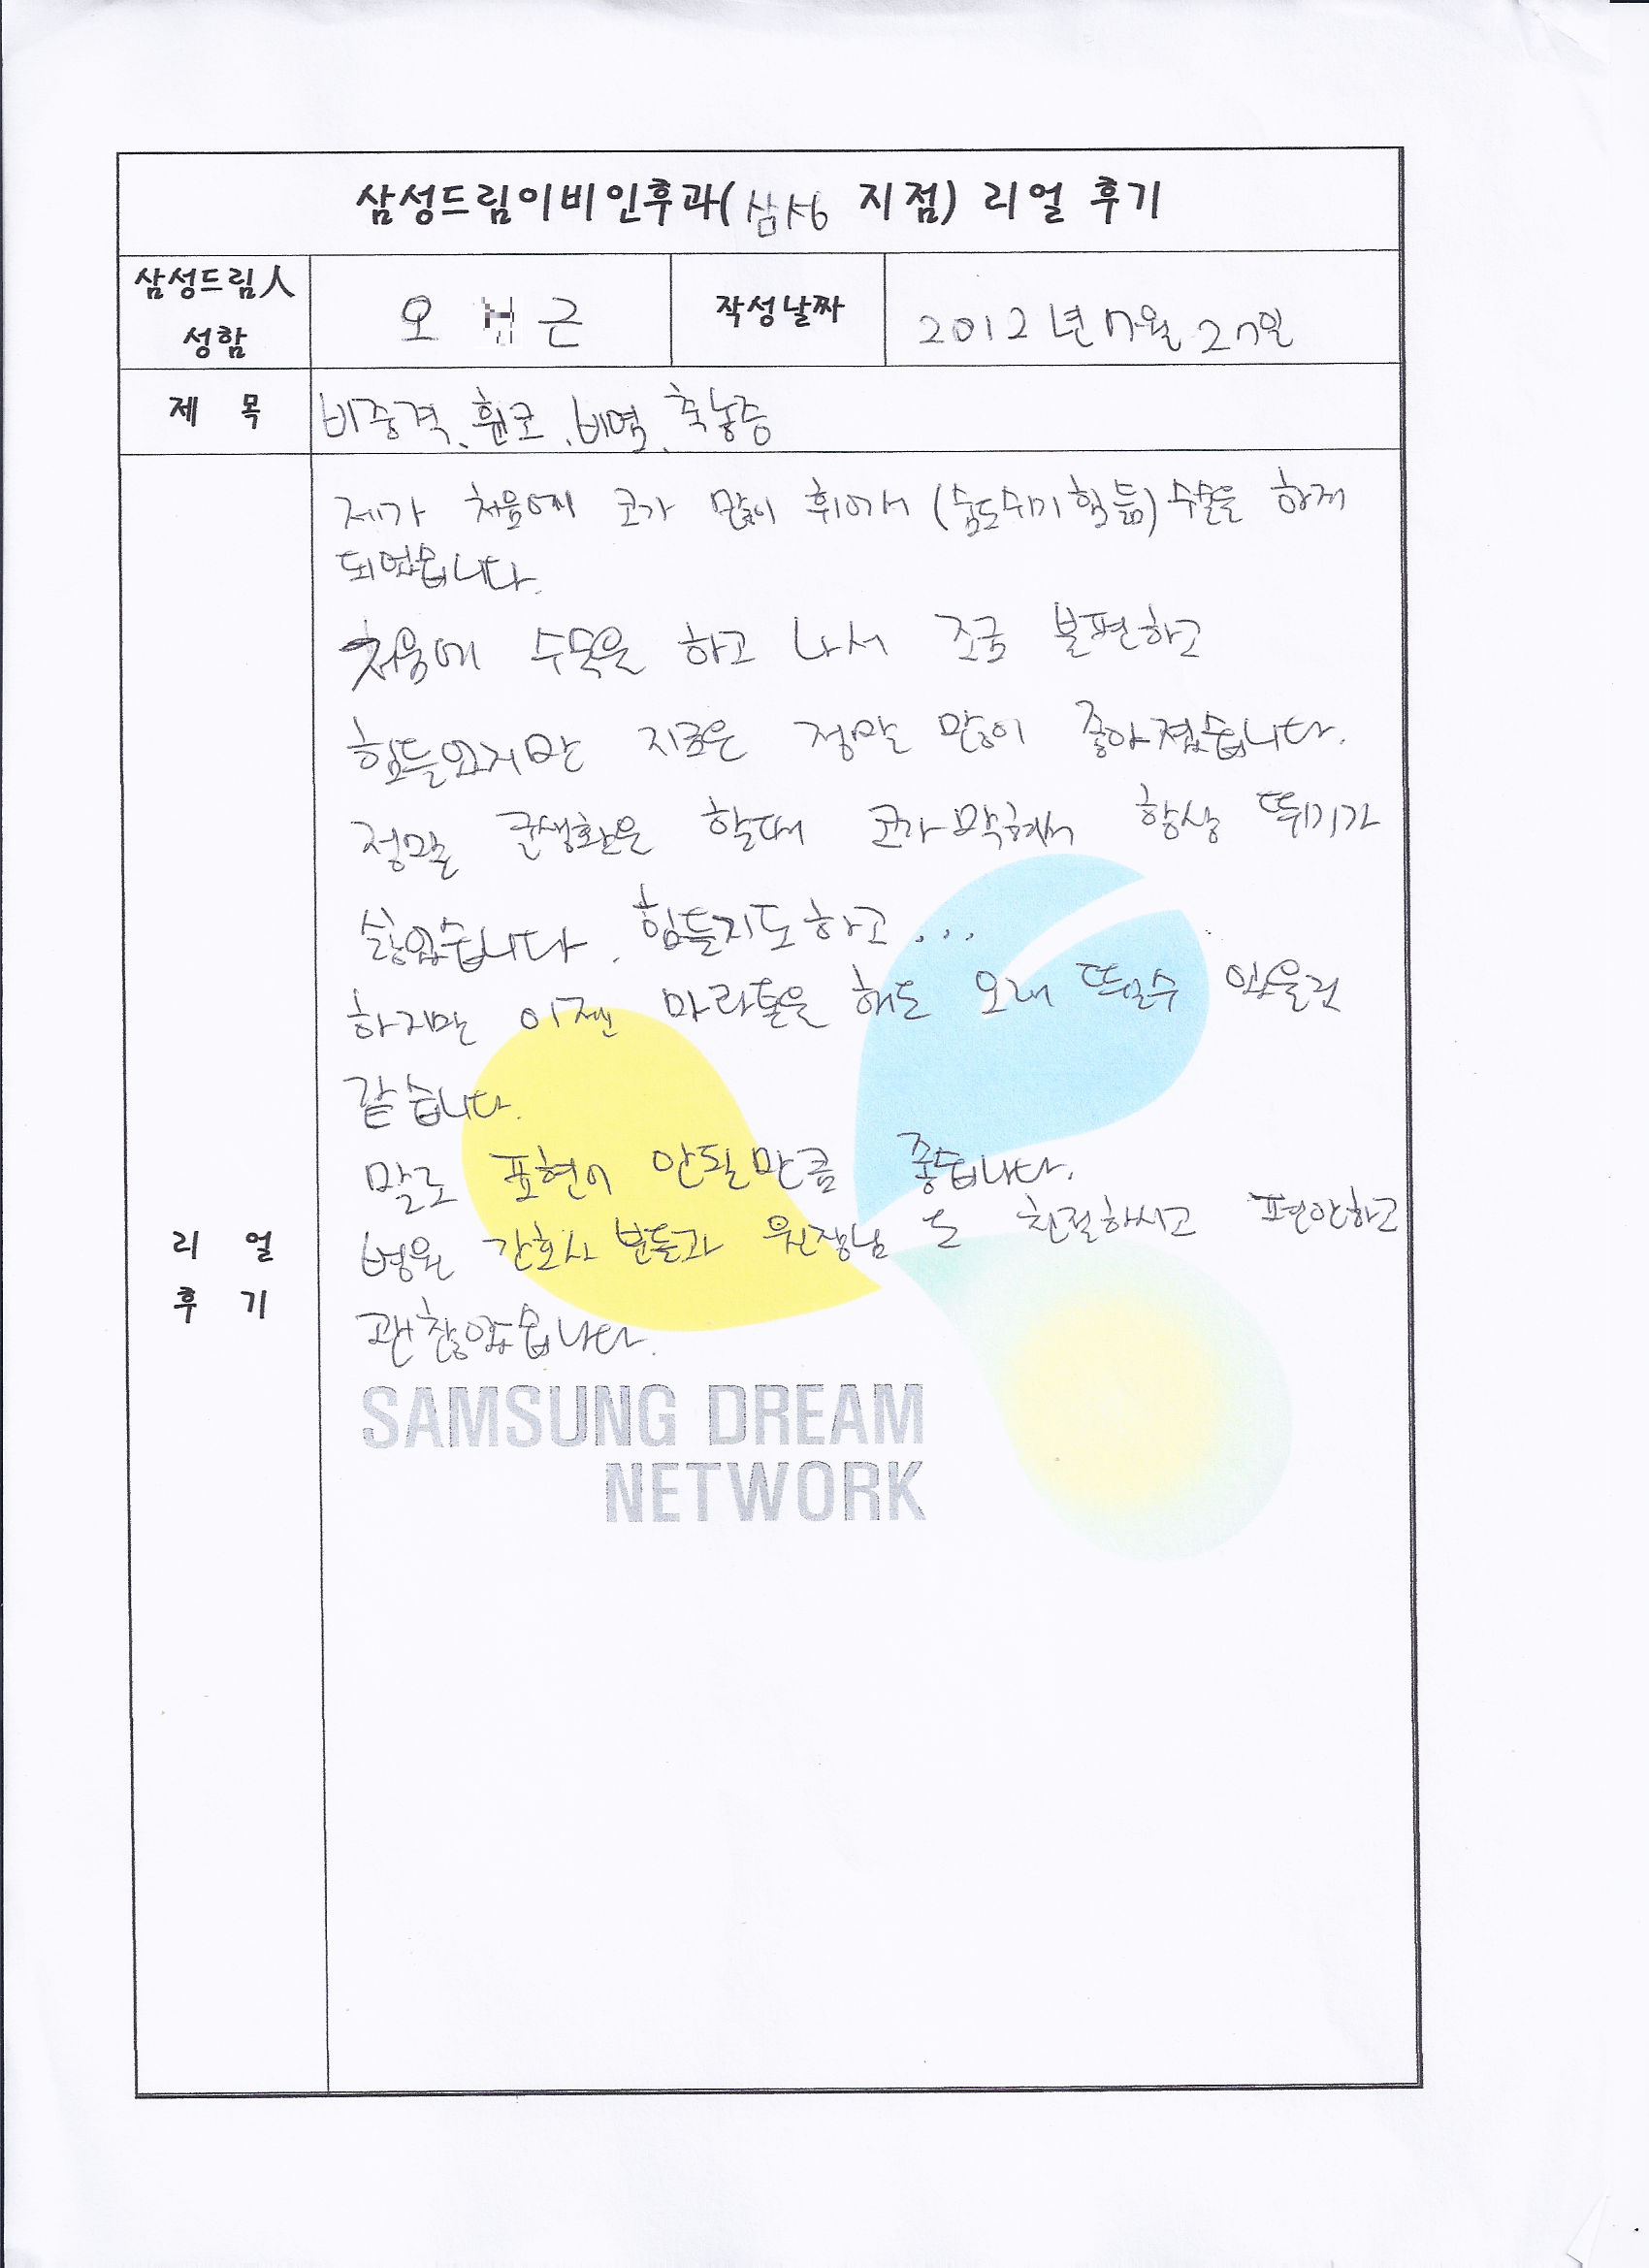 삼성드림이비인후과(삼성 지점) 리얼 후기
삼성드림人
성함
오 근
작성날짜
2012년 7월 27일
제 목
비중격, 휜코, 비염, 축농증
제가 처음에 코가 많이 휘어서 (숨도쉬기 힘듦) 수술을 하게
되었읍니다.
처음에 수술을 하고 나서 조금 불편하고
힘들었지만 지금은 정말 많이 좋아졌습니다.
정말 군생활은 할때 코가막혀서 항상 뛰기가
싫었습니다. 힘들지도하고...
하지만 이젠 마라톤을 해도 오래 뛸수 있을것
같습니다.
말로 표현이 안될만큼 좋습니다.
병원 간호사 분들과 원장님 도 친절하시고 편안하고
괜찮았읍니다.
리 얼
후 기
SAMSUNG DREAM
NETWORK